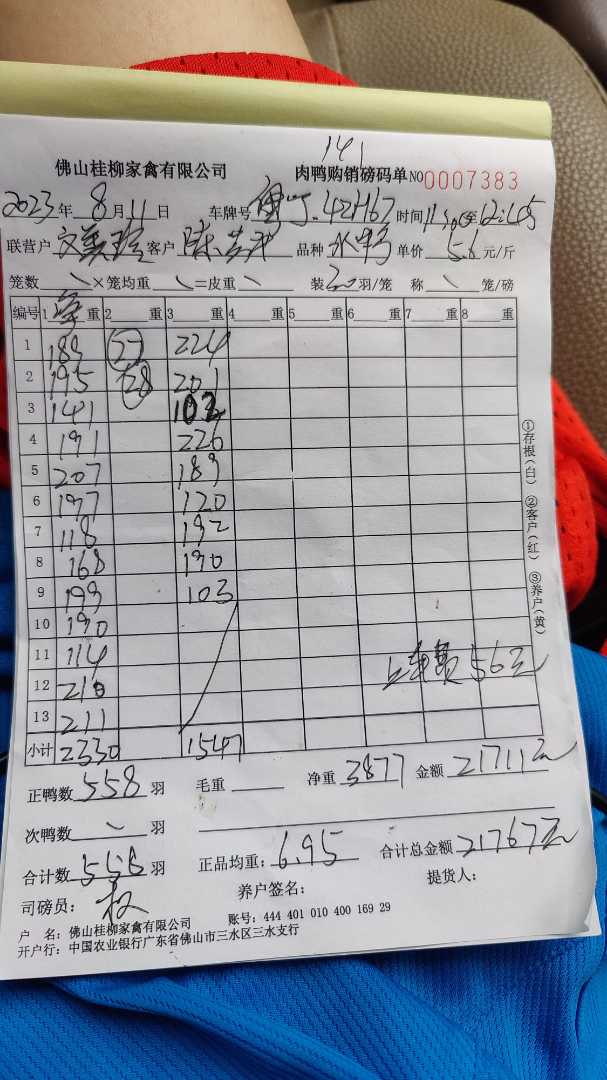 141
佛山桂柳家禽有限公司 肉鸭购销磅码单 NO 0007383
2023年8月11日 车牌号 42H67 时间
联营户 客户 陈 品种 水鸭 单价 5.6 元/斤
笼数 \ ×笼均重 \ =皮重 \ 装 20 羽/笼 称 \ 笼/磅
编号 1 重 2 重 3 重 4 重 5 重 6 重 7 重 8 重
1 189 27 224
2 195 28 201
3 141 102
4 191 226
5 207 189
6 197 120
7 118 192
8 168 190
9 199 103
10 190
11 114
12 210
13 211
小计 2330 1547
上车费 56元
①存根(白) ②客户(红) ③养户(黄)
正鸭数 558 羽 毛重 净重 3877 金额 21711元
次鸭数 \ 羽
合计数 558 羽 正品均重: 6.95 合计总金额 21767元
司磅员: 养户签名: 提货人:
户 名: 佛山桂柳家禽有限公司 账号: 444 401 010 400 169 29
开户行: 中国农业银行广东省佛山市三水区三水支行